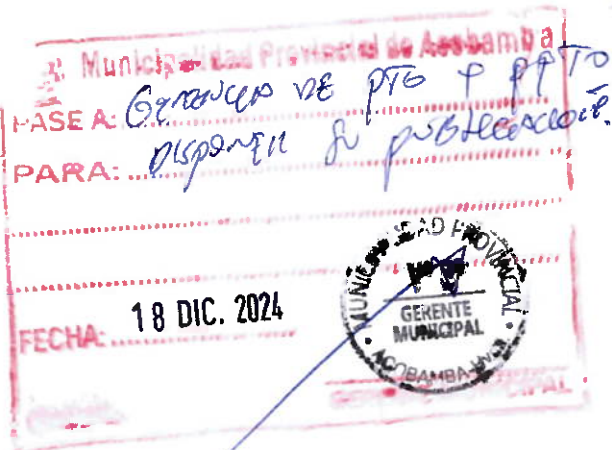 Municipalidad Provincial de Acobamba
PASE A: Gerencia DE PTO Y PPTO
PARA: DISPONER SU PUBLICACIÓN.
FECHA: 18 DIC. 2024
MUNICIPALIDAD PROVINCIAL
GERENTE
MUNICIPAL
ACOBAMBA-HVCA